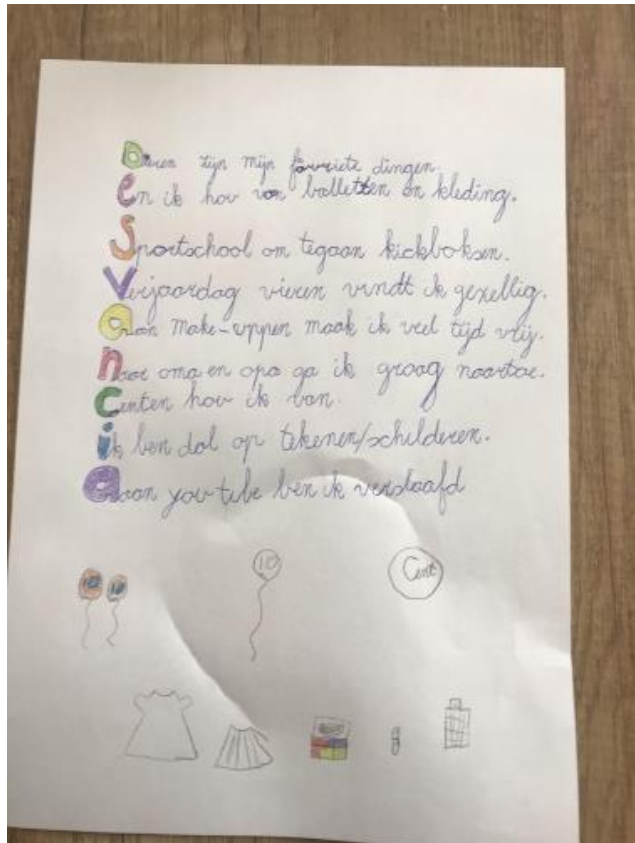 Dieren zijn mijn favoriete dingen.
En ik hou van balletten en kleding.
Sportschool om tegaan kickboksen.
Verjaardag vieren vindt ik gezellig.
aan make-uppen maak ik veel tijd vrij.
naar oma en opa ga ik graag naartoe.
Centen hou ik van.
ik ben dol op tekenen/schilderen.
aan youtube ben ik verslaafd
10 10 10 Cent